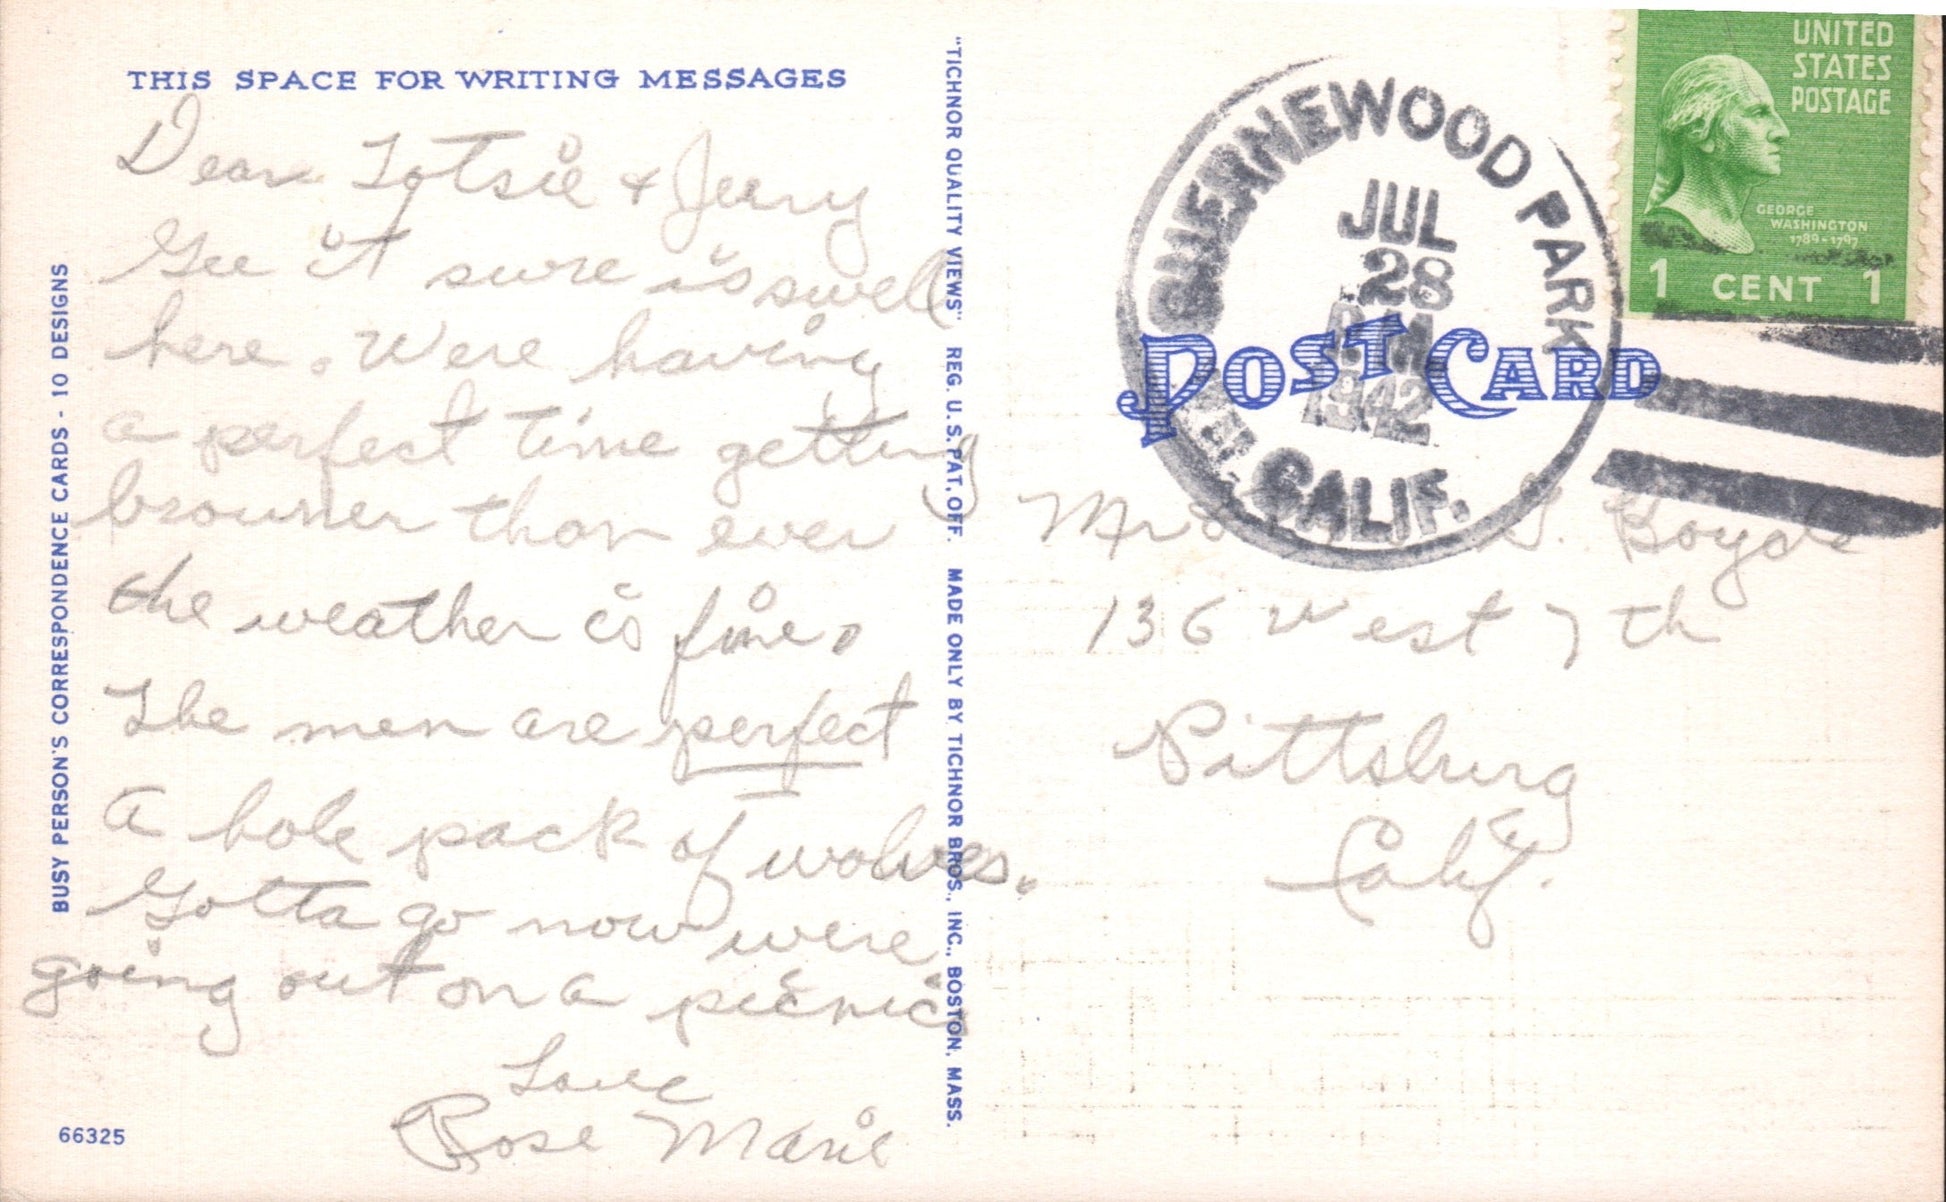 THIS SPACE FOR WRITING MESSAGES
Dear Totsie & Jerry
Gee it sure is swell
here. Were having
a perfect time getting
browner than ever
the weather is fine.
The men are perfect
A hole pack of wolves.
Gotta go now were
going out on a picnic
Love
Rose Marie
66325
BUSY PERSON'S CORRESPONDENCE CARDS - 10 DESIGNS
"TICHNOR QUALITY VIEWS" REG. U.S. PAT. OFF. MADE ONLY BY TICHNOR BROS., INC., BOSTON, MASS.
GUERNEWOOD PARK
JUL
28
PM
1942
CALIF.
UNITED
STATES
POSTAGE
GEORGE
WASHINGTON
1789-1797
1 CENT 1
POST CARD
G. Boyds
136 West 7th
Pittsburg
Calif.